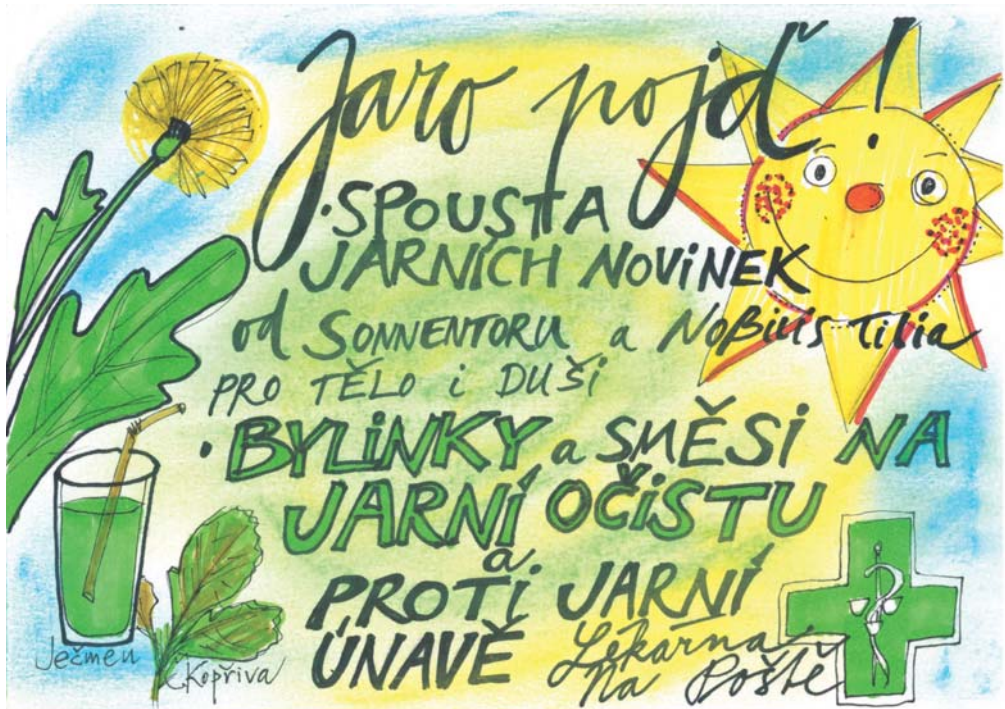 Jaro pojď!
• SPOUSTA
JARNÍCH NOViNEK
od SONNENTORU a NoBilis Tilia
PRO TĚLO i DUŠi
• BYLiNKY a SMĚSi NA
JARNÍ OČiSTU
a
PROTi JARNÍ
ÚNAVĚ
Lékárna
Na Poště
Ječmen
Kopřiva